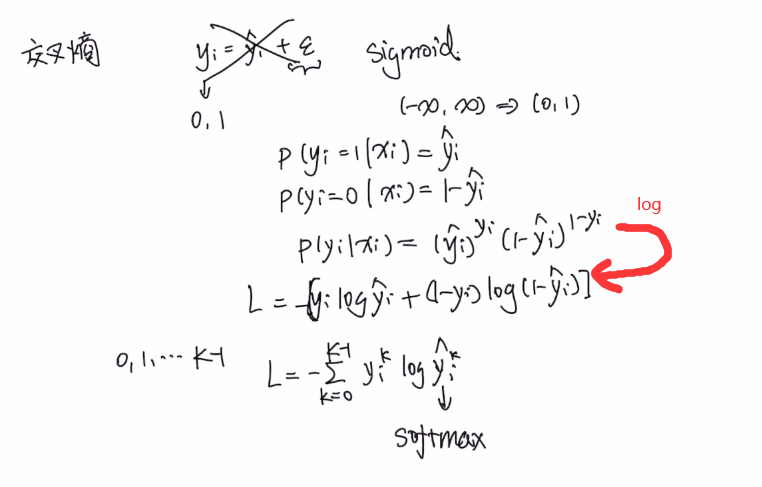 交叉熵 yᵢ = ŷᵢ + ε sigmoid
0, 1 (-∞, ∞) ⇒ (0, 1)
P(yᵢ=1|xᵢ) = ŷᵢ
P(yᵢ=0|xᵢ) = 1-ŷᵢ
log
P(yᵢ|xᵢ) = (ŷᵢ)^yᵢ (1-ŷᵢ)^1-yᵢ
L = -[yᵢ log ŷᵢ + (1-yᵢ) log (1-ŷᵢ)]
0, 1, ... K-1 L = -∑_{k=0}^{K-1} yᵢᵏ log ŷᵢᵏ
softmax